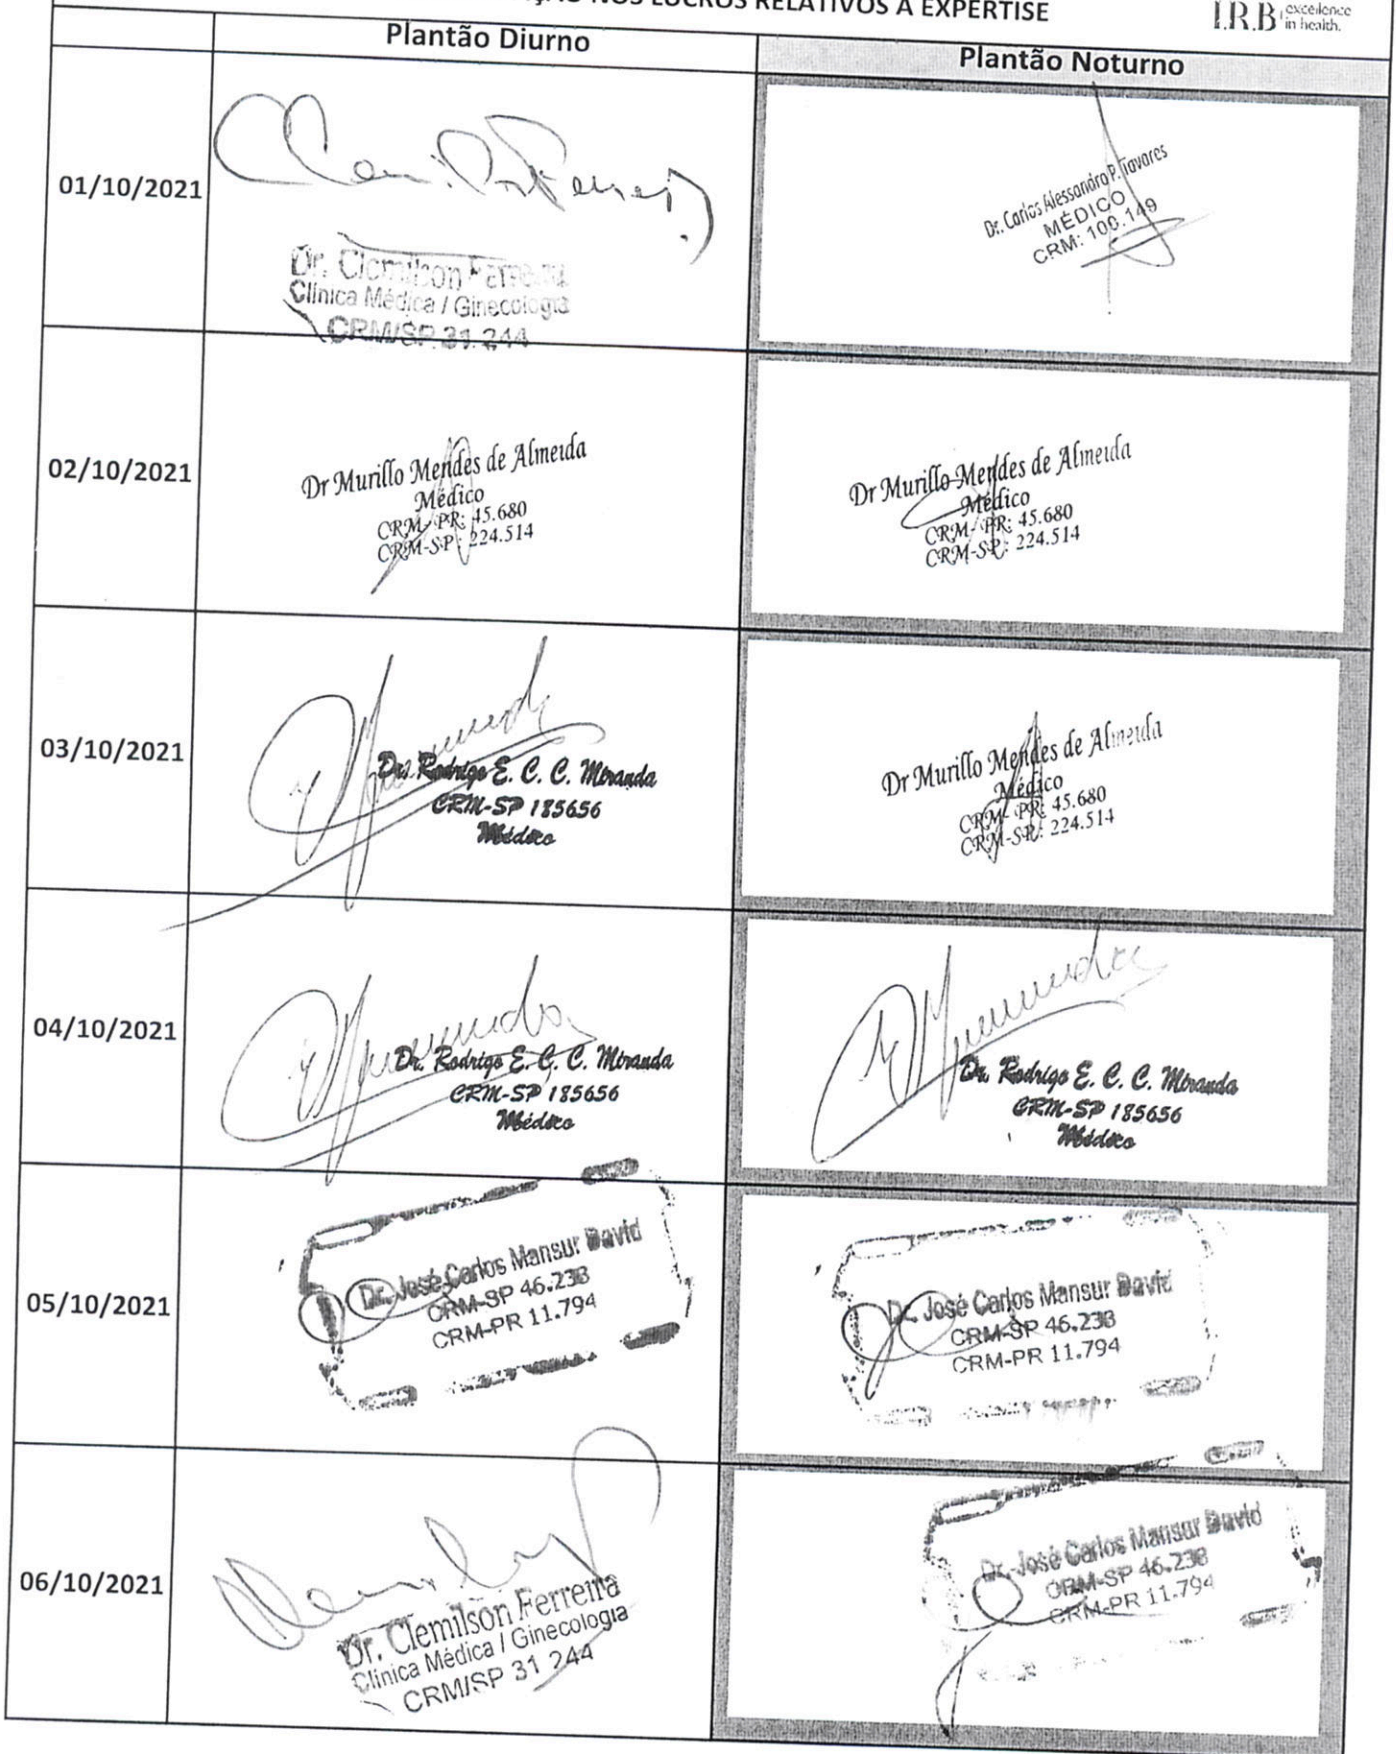 NOS LUCROS RELATIVOS A EXPERTISE
I.R.B excellence
in health.
Plantão Diurno
Plantão Noturno
01/10/2021
Dr. Clemilson Ferreira
Clínica Médica / Ginecologia
CRM/SP 31 244
Dr. Carlos Alessandro P. Tavares
MÉDICO
CRM: 100.149
02/10/2021
Dr Murillo Mendes de Almeida
Médico
CRM- PR: 45.680
CRM-SP: 224.514
Dr Murillo Mendes de Almeida
Médico
CRM- PR: 45.680
CRM-SP: 224.514
03/10/2021
Dr. Rodrigo E. C. C. Miranda
CRM-SP 185656
Médico
Dr Murillo Mendes de Almeida
Médico
CRM- PR: 45.680
CRM-SP: 224.514
04/10/2021
Dr. Rodrigo E. C. C. Miranda
CRM-SP 185656
Médico
Dr. Rodrigo E. C. C. Miranda
CRM-SP 185656
Médico
05/10/2021
Dr. José Carlos Mansur David
CRM-SP 46.238
CRM-PR 11.794
Dr. José Carlos Mansur David
CRM-SP 46.238
CRM-PR 11.794
06/10/2021
Dr. Clemilson Ferreira
Clínica Médica / Ginecologia
CRM/SP 31 244
Dr. José Carlos Mansur David
CRM-SP 46.238
CRM-PR 11.794